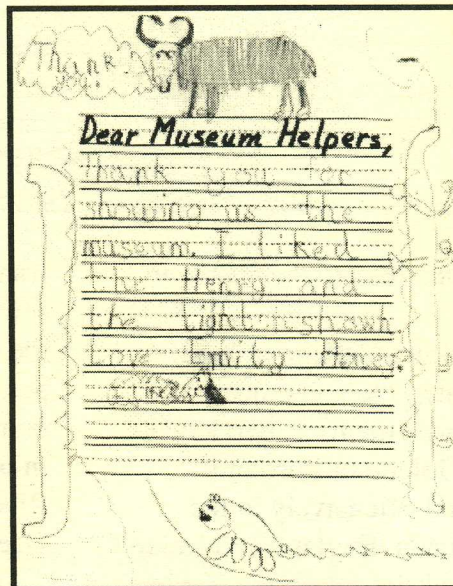 Thank
you!
Dear Museum Helpers,
Thank you for
showing us the
museum. I liked
the Henry and
the
Love Emily